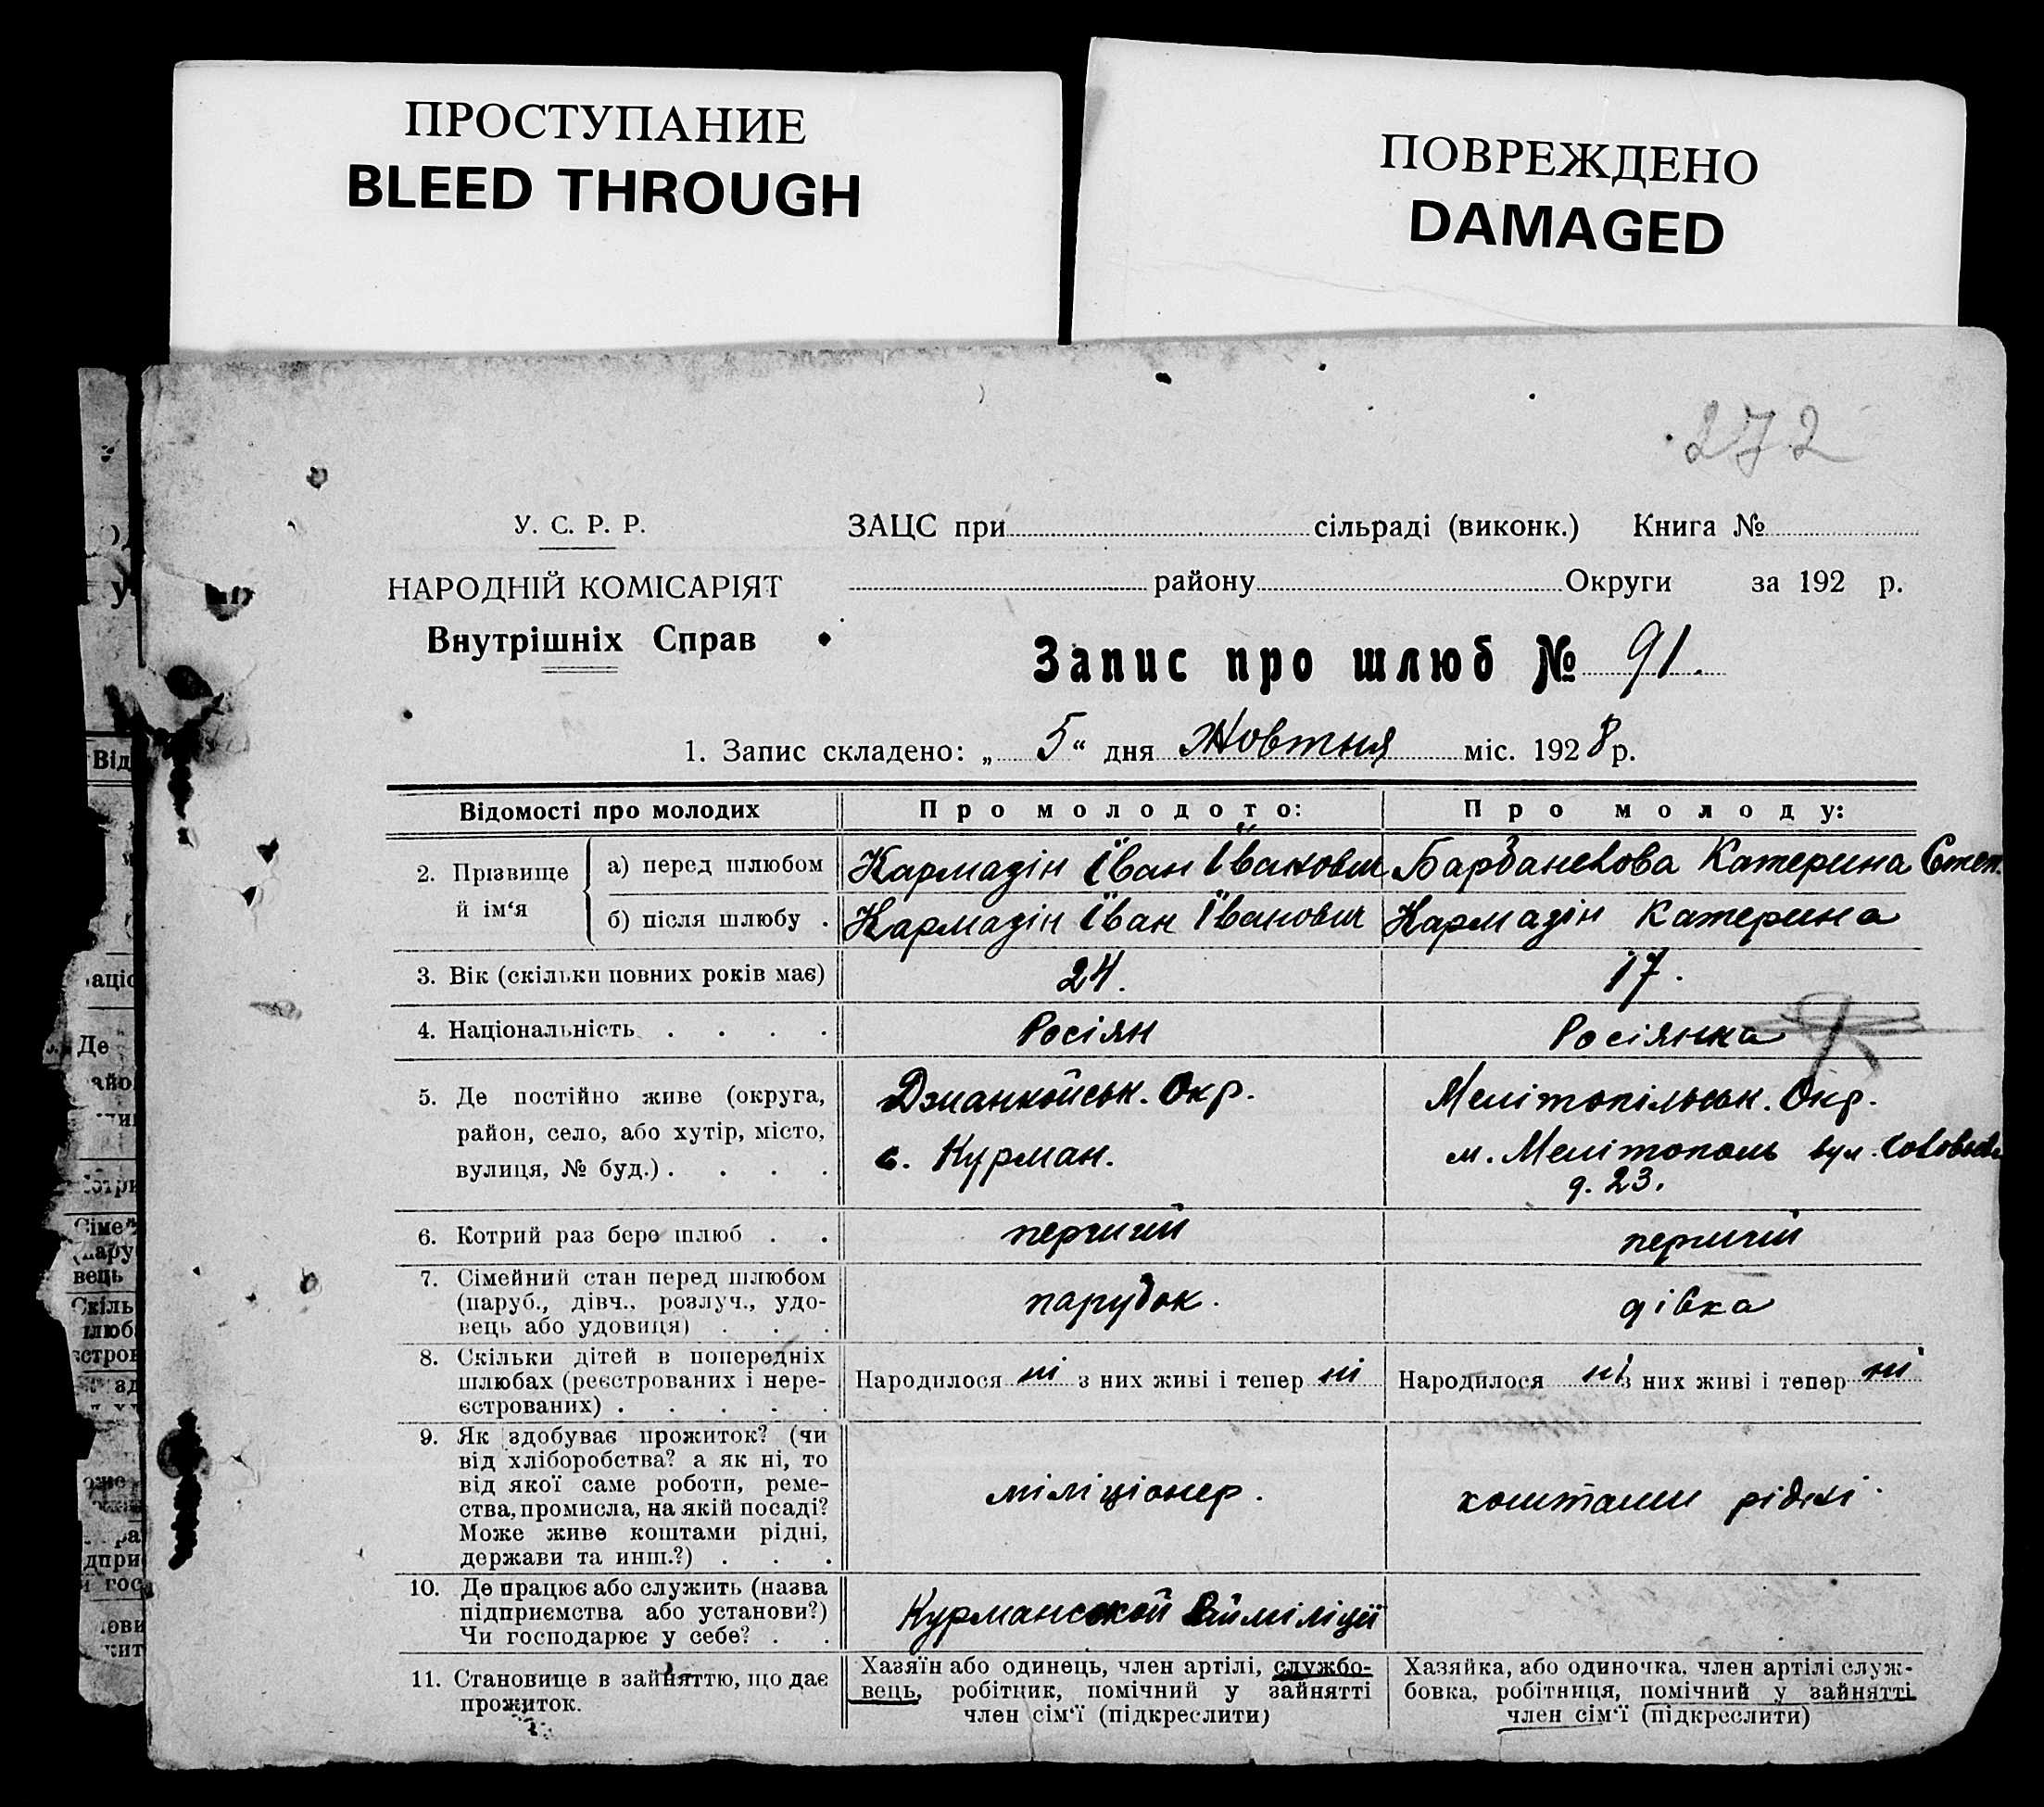 ПРОСТУПАНИЕ
BLEED THROUGH
ПОВРЕЖДЕНО
DAMAGED
272
У. С. Р. Р.
НАРОДНІЙ КОМІСАРІЯТ
Внутрішніх Справ
ЗАЦС при сільраді (виконк.) Книга №
району Округи за 192 р.
Запис про шлюб № 91.
1. Запис складено: „ 5 “ дня Жовтня міс. 1928 р.
Відомості про молодих
Про молодого:
Про молоду:
2. Прізвище й ім‘я
а) перед шлюбом
Кармазін Іван Іванович
Катерина Степ.
б) після шлюбу .
Кармазін Іван Іванович
Кармазін Катерина
3. Вік (скільки повних років має)
24.
17.
4. Національність . . . .
Росіян
Росіянка
5. Де постійно живе (округа,
район, село, або хутір, місто,
вулиця, № буд.) . . . .
Джанкойськ. Окр.
с. Курман.
Мелітопільськ. Окр.
м. Мелітополь вул.
д. 23.
6. Котрий раз бере шлюб . .
перший
перший
7. Сімейний стан перед шлюбом
(паруб., дівч., розлуч., удо-
вець або удовиця) . . .
парубок.
дівка
8. Скільки дітей в попередніх
шлюбах (реєстрованих і нере-
єстрованих) . . . . .
Народилося ні з них живі і тепер ні
Народилося ні з них живі і тепер ні
9. Як здобуває прожиток? (чи
від хліборобства? а як ні, то
від якої саме роботи, реме-
ства, промисла, на якій посаді?
Може живе коштами рідні,
держави та инш.?) . . .
міліціонер.
коштами рідні
10. Де працює або служить (назва
підприємства або установи?)
Чи господарює у себе? . .
Курманской Райміліції
11. Становище в зайняттю, що дає
прожиток.
Хазяїн або одинець, член артілі, службо-
вець, робітник, помічний у зайнятті
член сім‘ї (підкреслити)
Хазяйка, або одиночка, член артілі служ-
бовка, робітниця, помічний у зайнятті
член сім‘ї (підкреслити)